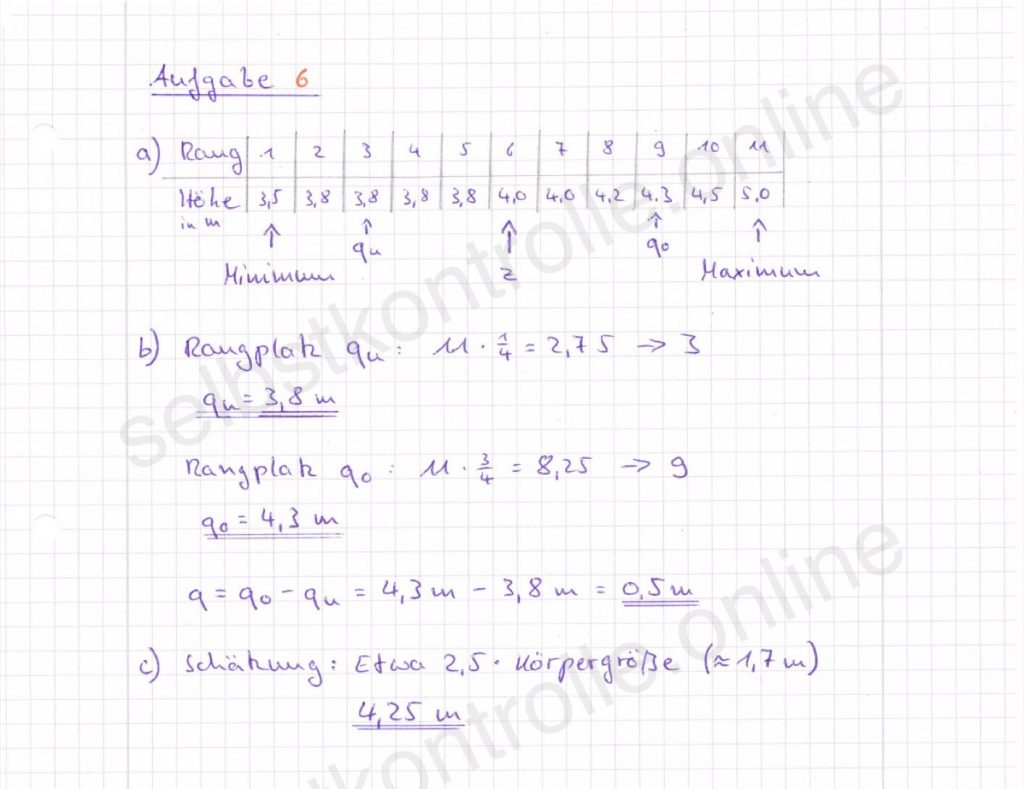 Aufgabe 6
a) Rang 1 2 3 4 5 6 7 8 9 10 11
Höhe in m 3,5 3,8 3,8 3,8 3,8 4,0 4,0 4,2 4.3 4,5 5,0
↑ ↑ ↑ ↑ ↑
Minimum qu z qo Maximum
b) Rangplatz qu : 11 · 1/4 = 2,75 → 3
qu = 3,8 m
Rangplatz qo : 11 · 3/4 = 8,25 → 9
qo = 4,3 m
q = qo - qu = 4,3 m - 3,8 m = 0,5 m
c) Schätzung: Etwa 2,5 · Körpergröße (≈ 1,7 m)
4,25 m
selbstkontrolle.online
selbstkontrolle.online